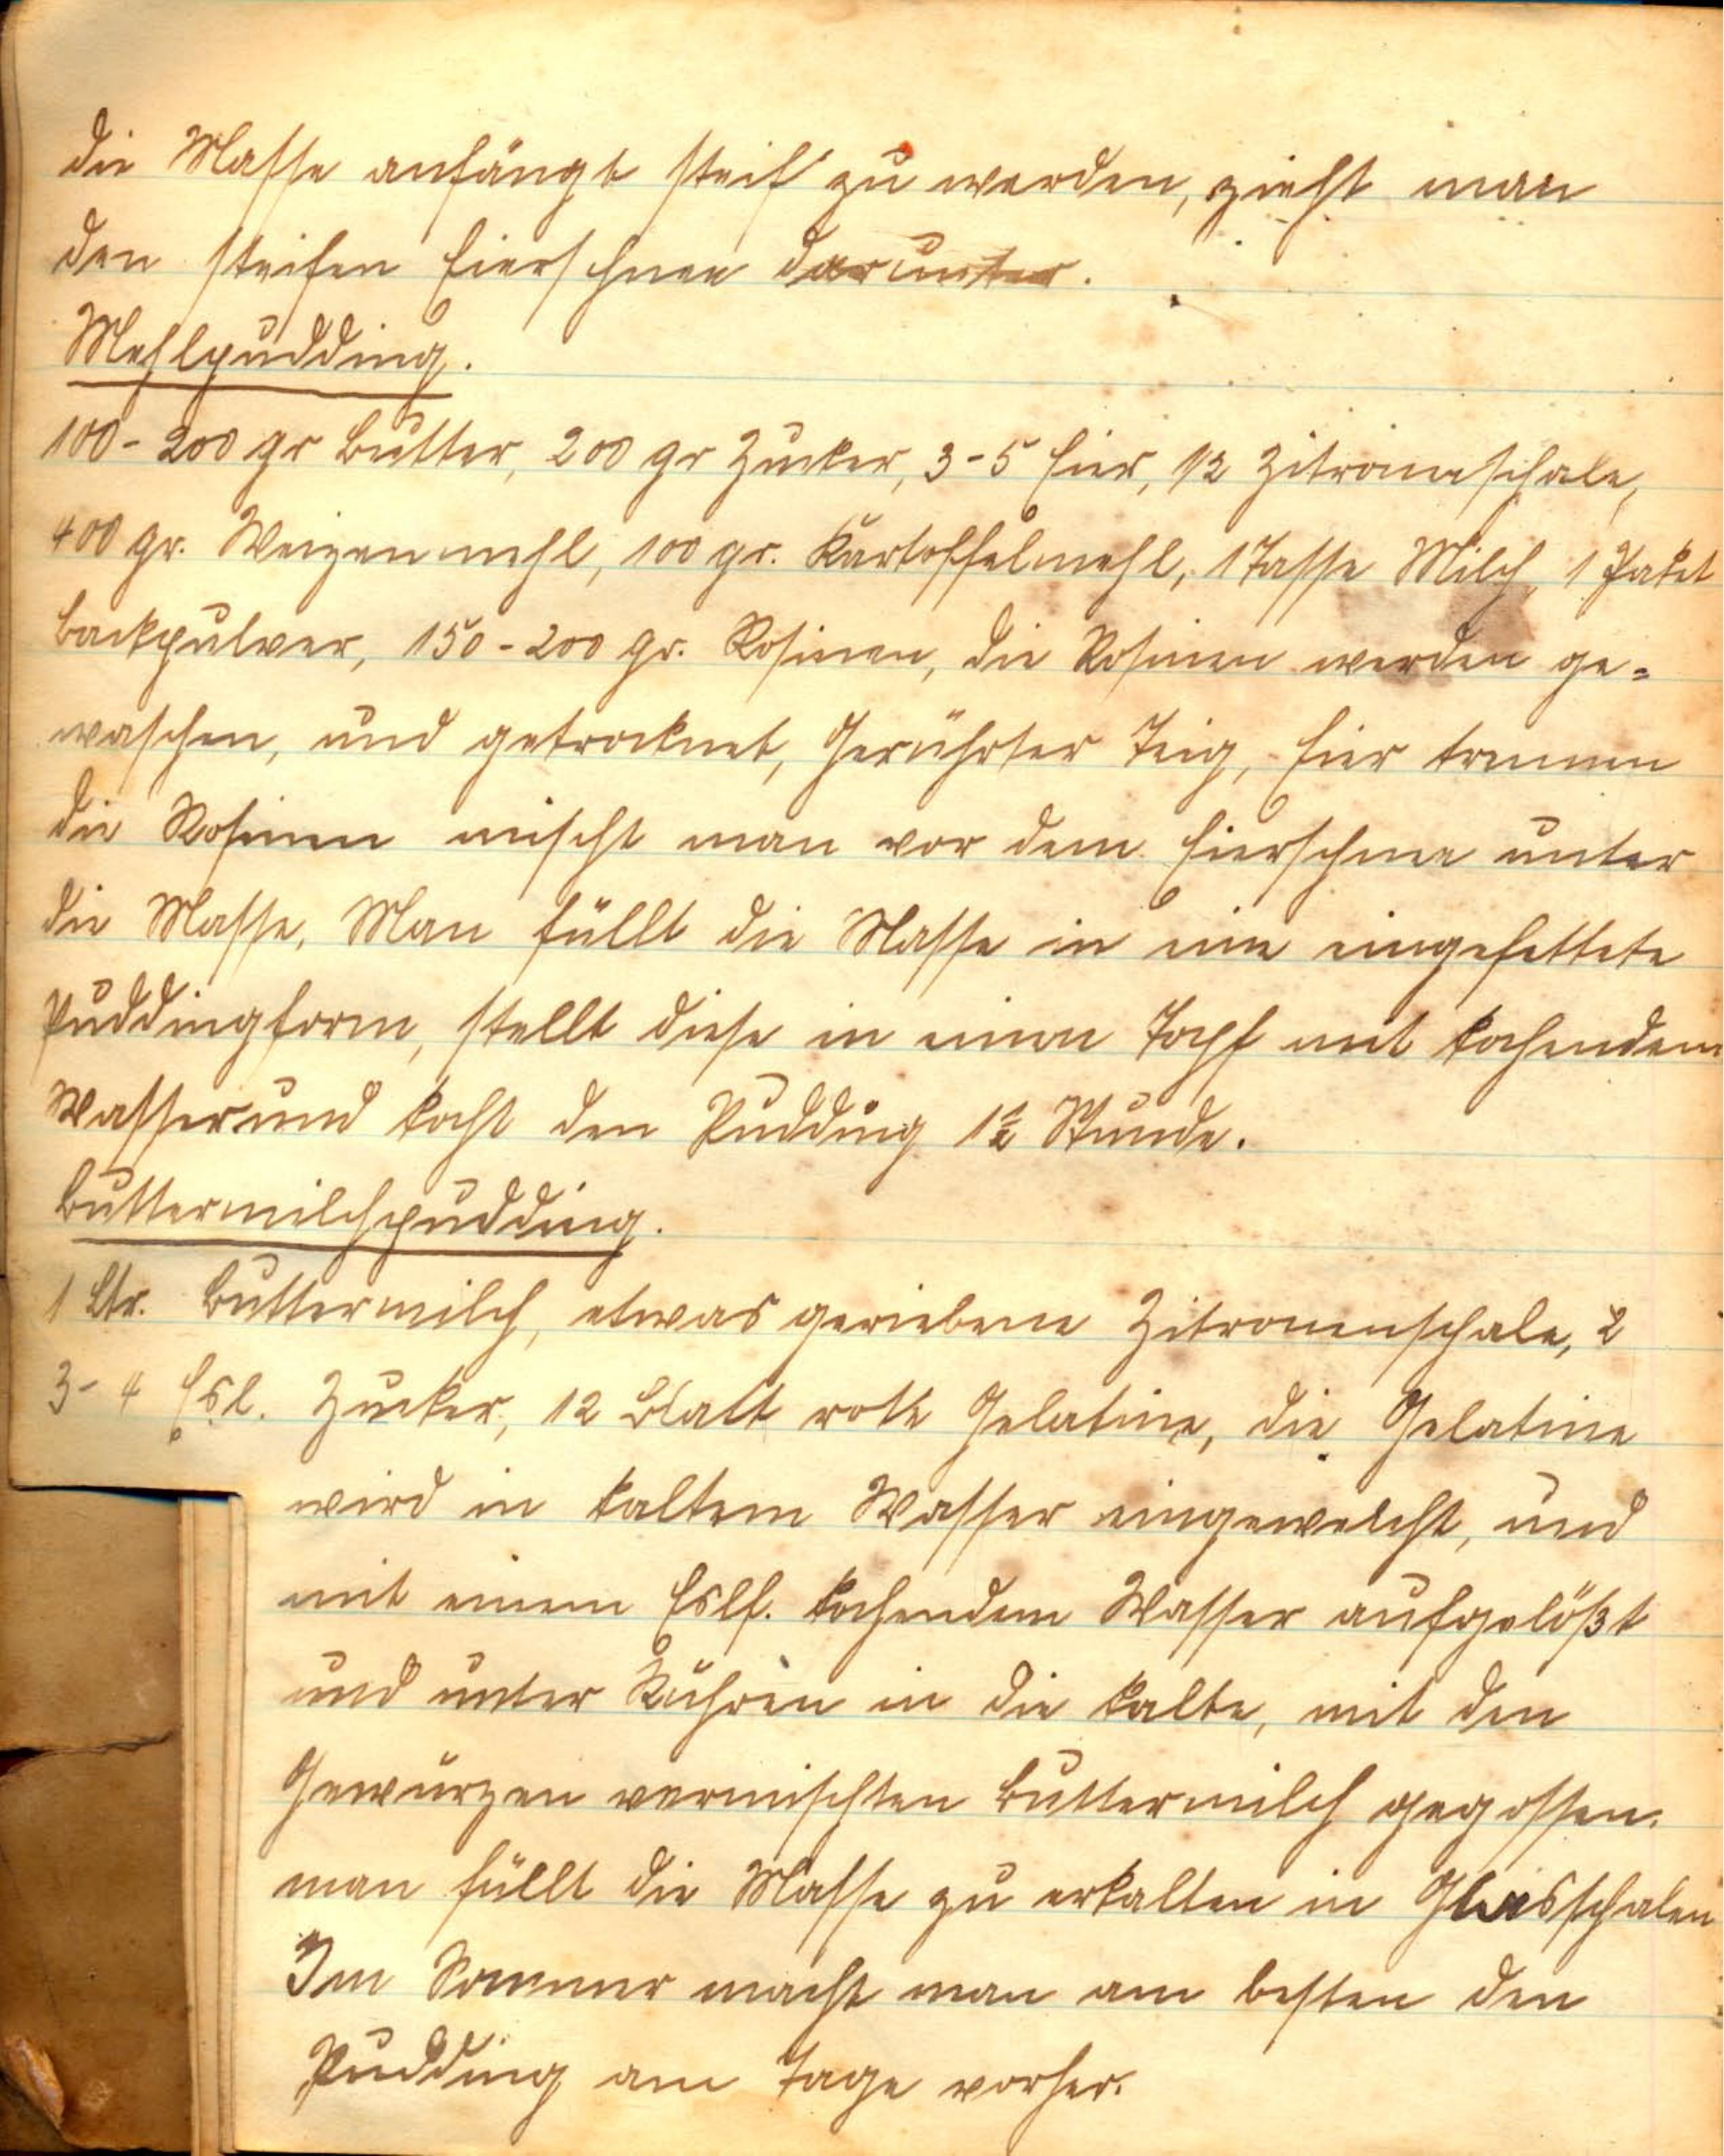 die Masse anfängt steif zu werden, zieht man
den steifen Eierschnee darunter.
Mehlpudding.
100-200 gr Butter, 200 gr Zucker, 3-5 Eier, 1/2 Zitronenschale,
400 gr. Weizenmehl, 100 gr. Kartoffelmehl, 1 Tasse Milch, 1 Paket
Backpulver, 150-200 gr. Rosinen, die Rosinen werden ge=
waschen, und getrocknet, Gerührter Teig, Eier trennen
die Rosinen mischt man vor dem Eierschnee unter
die Masse, Man füllt die Masse in eine eingefettete
Puddingform, stellt diese in einen Topf mit kochendem
Wasser und kocht den Pudding 1 1/2 Stunde.
Buttermilchpudding.
1 Ltr. Buttermilch, etwas geriebene Zitronenschale, 2
3-4 Esl. Zucker, 12 Blatt rote Gelatine, die Gelatine
wird in kaltem Wasser eingeweicht, und
mit einem Eslf. kochendem Wasser aufgelößt
und unter Rühren in die kalte, mit den
Gewürzen vermischten Buttermilch gegossen.
man füllt die Masse zu erkalten in Glasschalen
Im Sommer macht man am besten den
Pudding am Tage vorher.